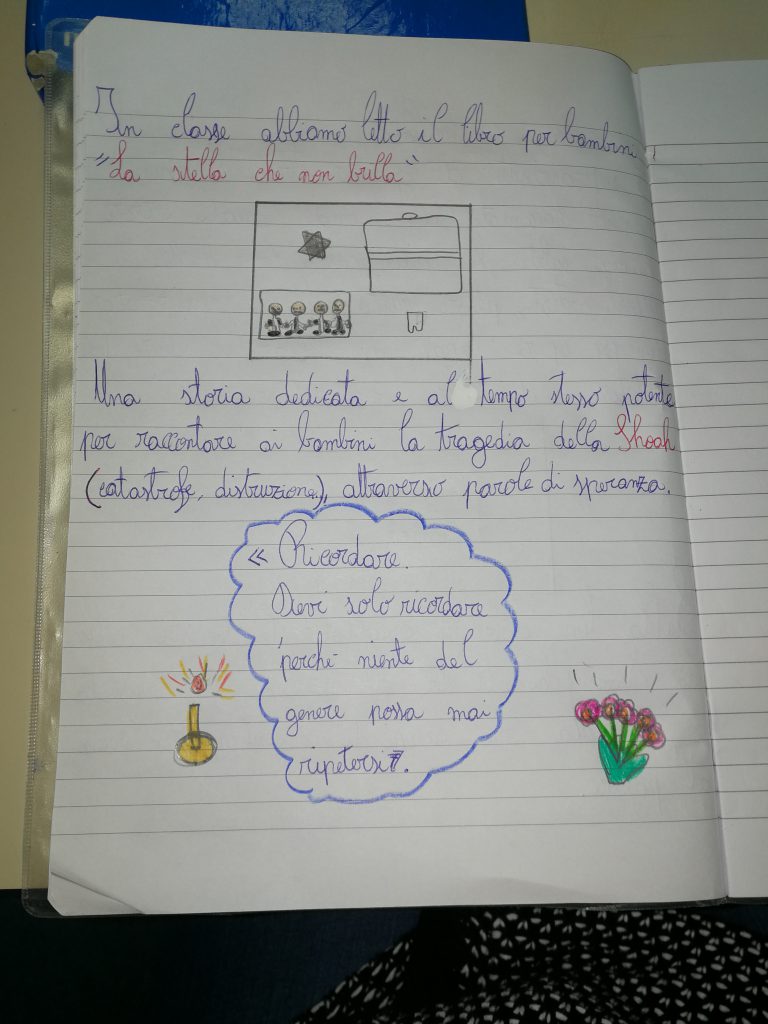 In classe abbiamo letto il libro per bambini
"La stella che non brilla"
Una storia dedicata e al tempo stesso potente
per raccontare ai bambini la tragedia della Shoah
(catastrofe, distruzione), attraverso parole di speranza.
« Ricordare.
Devi solo ricordare
perché niente del
genere possa mai
ripetersi.